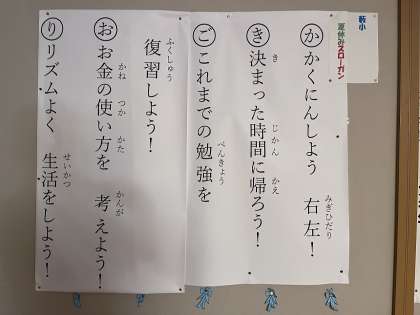 夏休みスローガン
みぎひだり
か かくにんしよう　右左！
き　じかん　かえ
き 決まった時間に帰ろう！
べんきょう
ご これまでの勉強を
ふくしゅう
復習しよう！
かね　つか　かた　かんが
お お金の使い方を　考えよう！
せいかつ
り リズムよく　生活をしよう！